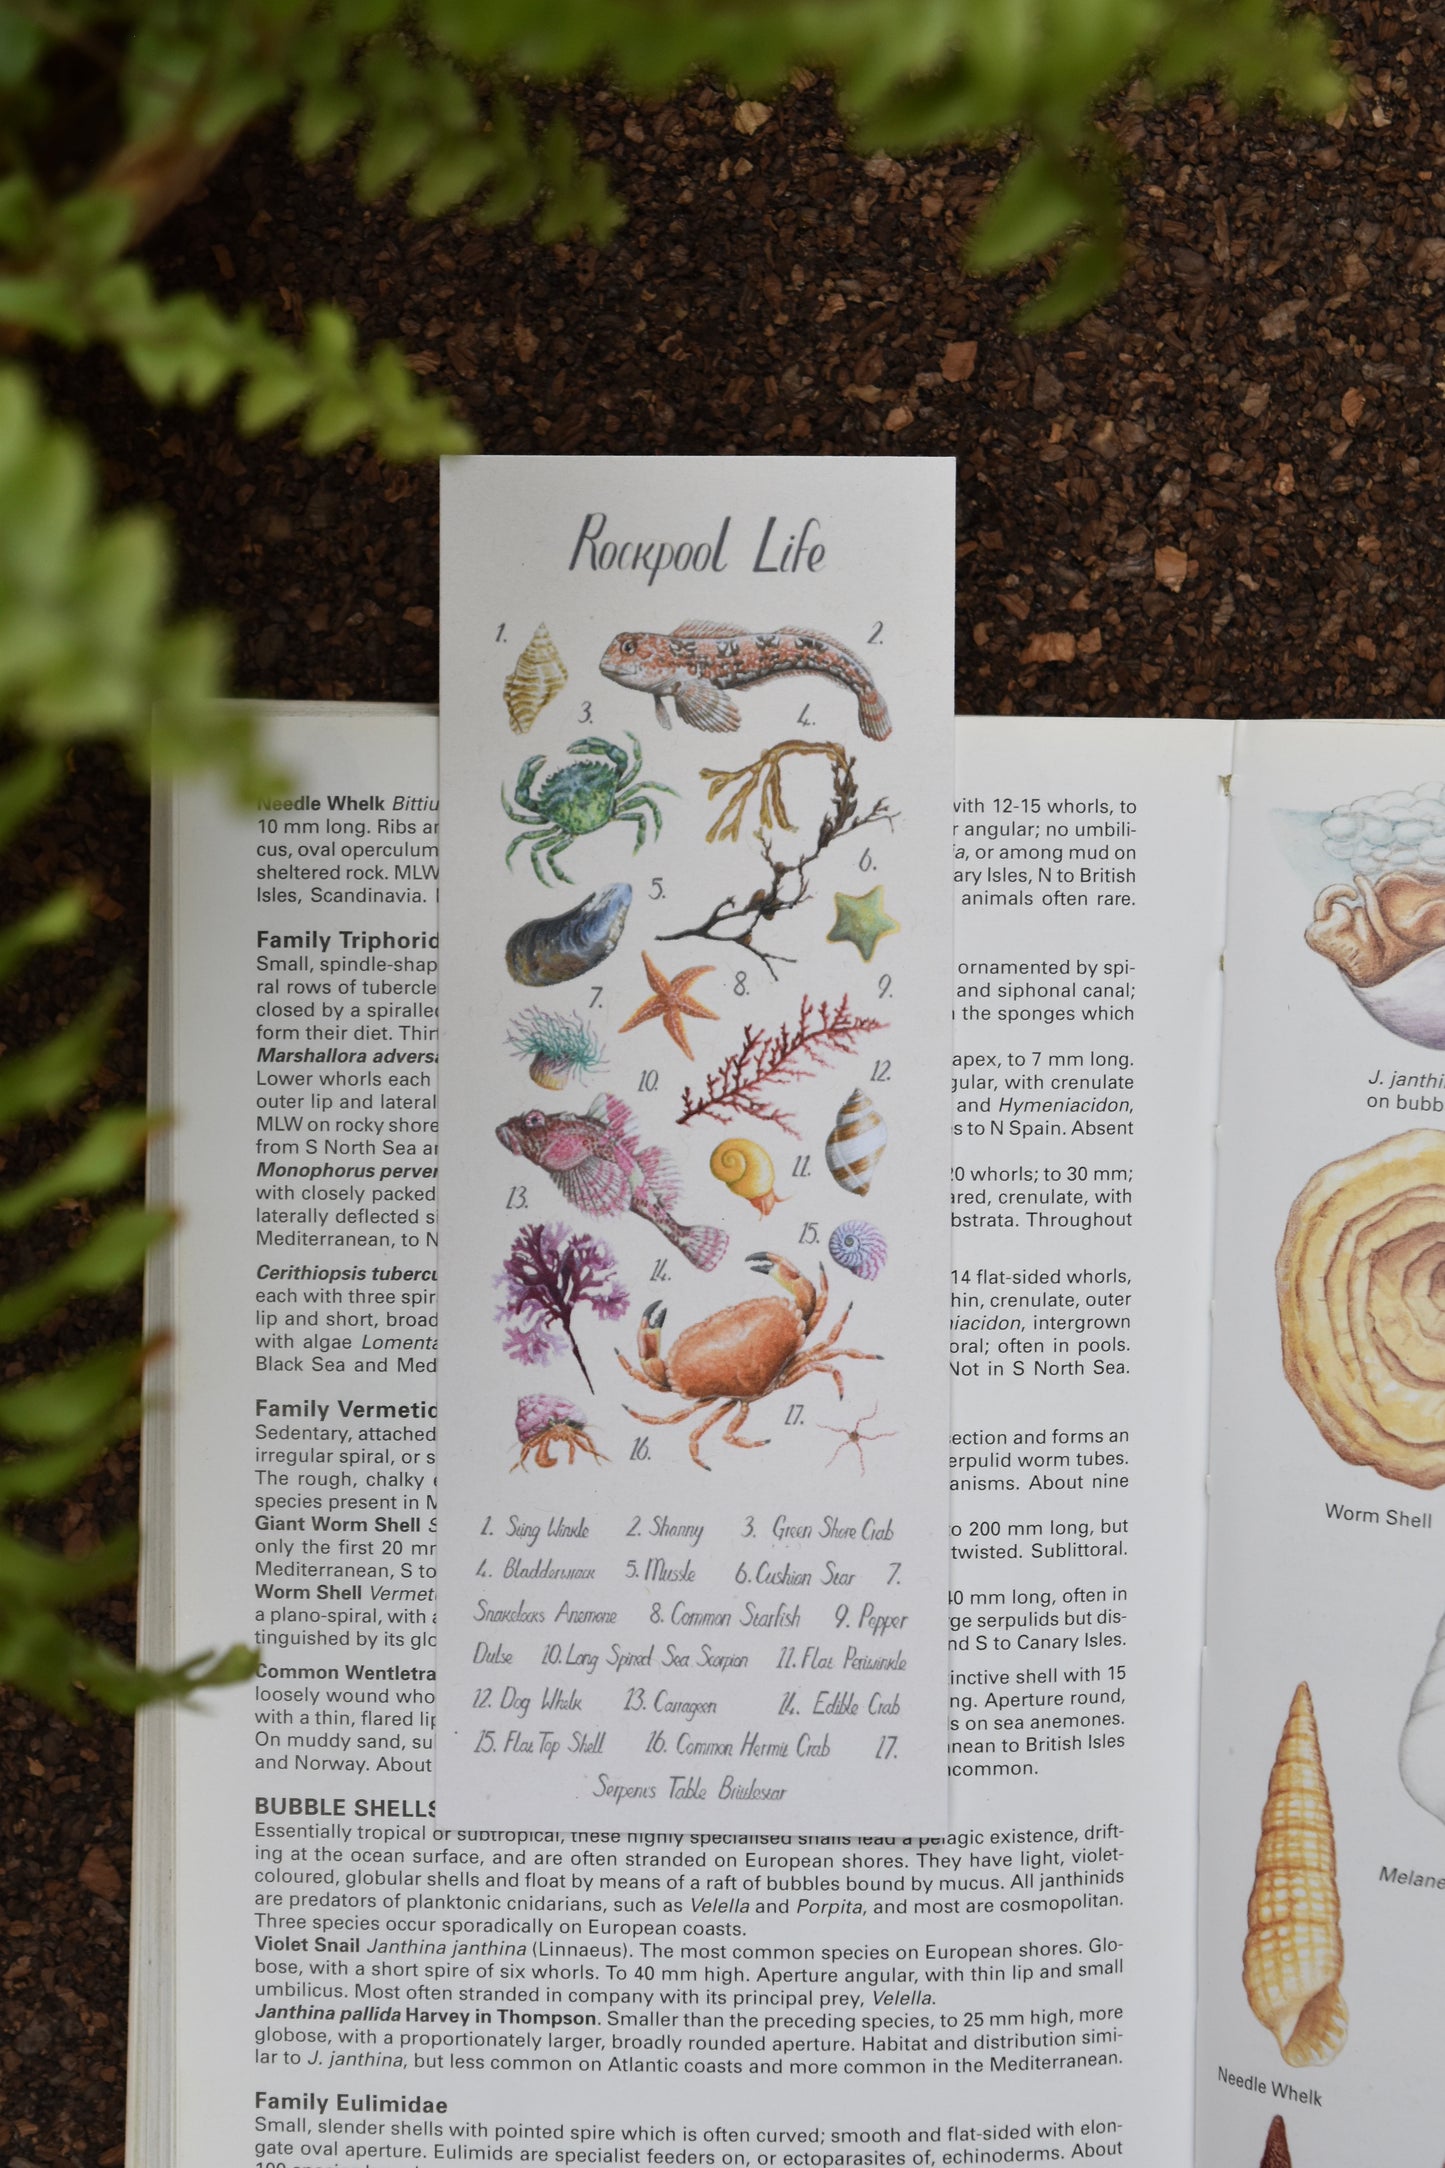 Rockpool Life
1.
2.
3.
4.
5.
6.
7.
8.
9.
10.
12.
11.
13.
15.
14.
17.
16.
1. Sting Winkle 2. Shanny 3. Green Shore Crab
4. Bladderwrack 5. Mussle 6. Cushion Star 7.
Snakelocks Anemone 8. Common Starfish 9. Pepper
Dulse 10. Long Spined Sea Scorpion 11. Flat Periwinkle
12. Dog Whelk 13. Carrageen 14. Edible Crab
15. Flat Top Shell 16. Common Hermit Crab 17.
Serpent's Table Brittlestar
Needle Whelk Bittiu
10 mm long. Ribs ar
cus, oval operculum
sheltered rock. MLW
Isles, Scandinavia.
Family Triphorid
Small, spindle-shap
ral rows of tubercle
closed by a spiralled
form their diet. Thirt
Marshallora adversa
Lower whorls each
outer lip and lateral
MLW on rocky shore
from S North Sea ar
Monophorus perver
with closely packed
laterally deflected si
Mediterranean, to N
Cerithiopsis tubercu
each with three spir
lip and short, broad
with algae Lomenta
Black Sea and Med
Family Vermetid
Sedentary, attached
irregular spiral, or s
The rough, chalky
species present in M
Giant Worm Shell S
only the first 20 mm
Mediterranean, S to
Worm Shell Vermetu
a plano-spiral, with a
tinguished by its glo
Common Wentletra
loosely wound who
with a thin, flared lip
On muddy sand, su
and Norway. About
with 12-15 whorls, to
r angular; no umbili-
ia, or among mud on
ary Isles, N to British
animals often rare.
ornamented by spi-
and siphonal canal;
the sponges which
apex, to 7 mm long.
gular, with crenulate
and Hymeniacidon,
s to N Spain. Absent
20 whorls; to 30 mm;
ared, crenulate, with
bstrata. Throughout
14 flat-sided whorls,
hin, crenulate, outer
niacidon, intergrown
oral; often in pools.
Not in S North Sea.
ection and forms an
erpulid worm tubes.
anisms. About nine
o 200 mm long, but
twisted. Sublittoral.
40 mm long, often in
ge serpulids but dis-
nd S to Canary Isles.
inctive shell with 15
ng. Aperture round,
s on sea anemones.
nean to British Isles
common.
BUBBLE SHELLS
Essentially tropical or subtropical, these highly specialised snails lead a pelagic existence, drift-
ing at the ocean surface, and are often stranded on European shores. They have light, violet-
coloured, globular shells and float by means of a raft of bubbles bound by mucus. All janthinids
are predators of planktonic cnidarians, such as Velella and Porpita, and most are cosmopolitan.
Three species occur sporadically on European coasts.
Violet Snail Janthina janthina (Linnaeus). The most common species on European shores. Glo-
bose, with a short spire of six whorls. To 40 mm high. Aperture angular, with thin lip and small
umbilicus. Most often stranded in company with its principal prey, Velella.
Janthina pallida Harvey in Thompson. Smaller than the preceding species, to 25 mm high, more
globose, with a proportionately larger, broadly rounded aperture. Habitat and distribution simi-
lar to J. janthina, but less common on Atlantic coasts and more common in the Mediterranean.
Family Eulimidae
Small, slender shells with pointed spire which is often curved; smooth and flat-sided with elon-
gate oval aperture. Eulimids are specialist feeders on, or ectoparasites of, echinoderms. About
J. janthi
on bubb
Worm Shell
Melane
Needle Whelk